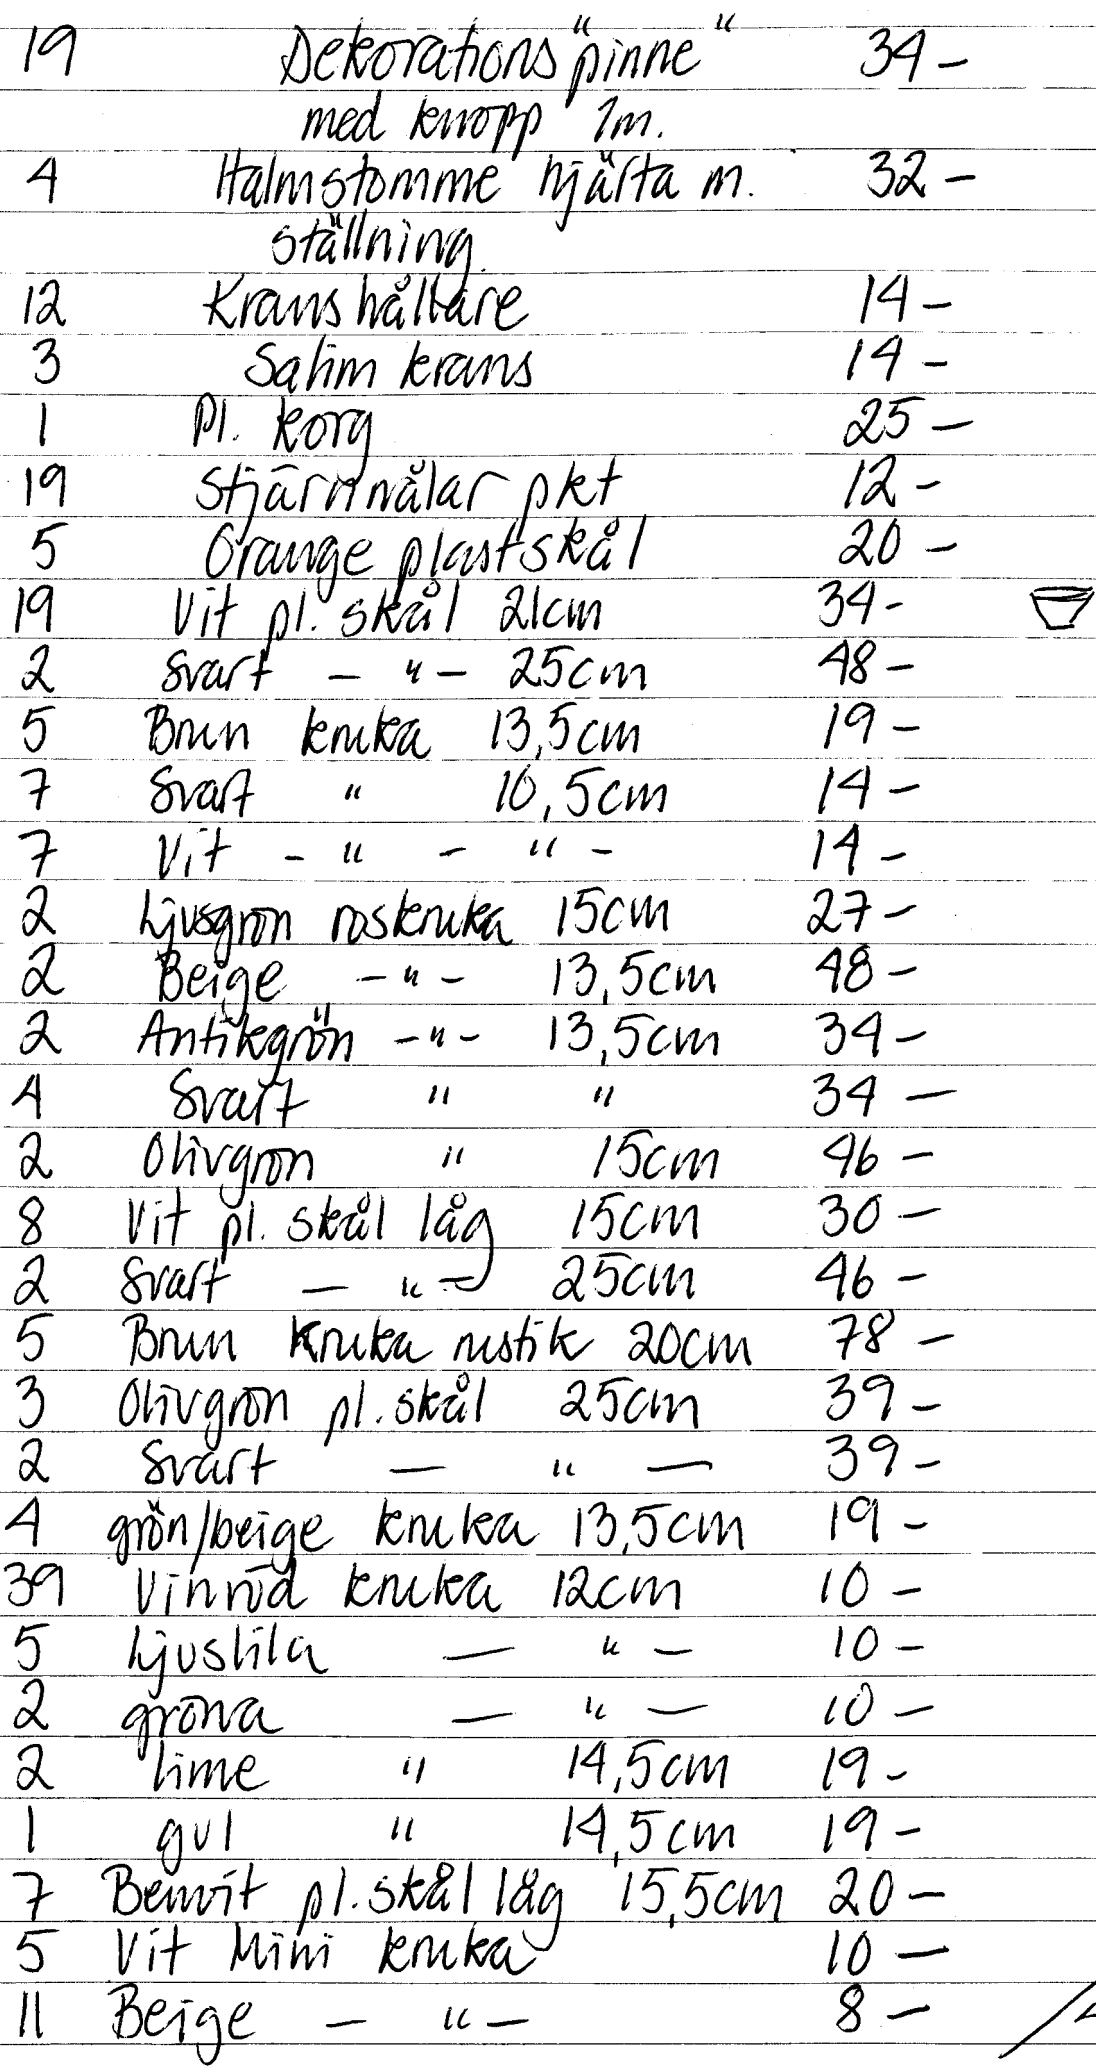 19 Dekorations "pinne" 34 -
med knopp 1m.
4 Halmstomme hjärta m. 32 -
ställning
12 Kranshållare 14 -
3 Satin krans 14 -
1 Pl. korg 25 -
19 Stjärnnålar pkt 12 -
5 Orange plastskål 20 -
19 Vit pl. skål 21cm 34 -
2 Svart - " - 25cm 48 -
5 Brun kruka 13,5cm 19 -
7 Svart " 10,5cm 14 -
7 Vit - " - " - 14 -
2 Ljusgrön roskruka 15cm 27 -
2 Beige - " - 13,5cm 48 -
2 Antikgrön - " - 13,5cm 34 -
4 Svart " " 34 -
2 Olivgrön " 15cm 46 -
8 Vit pl. skål låg 15cm 30 -
2 Svart - " - 25cm 46 -
5 Brun kruka rustik 20cm 78 -
3 Olivgrön pl. skål 25cm 39 -
2 Svart - " - 39 -
4 grön/beige kruka 13,5cm 19 -
39 Vinröd kruka 12cm 10 -
5 Ljuslila - " - 10 -
2 gröna - " - 10 -
2 lime " 14,5cm 19 -
1 gul " 14,5cm 19 -
7 Benvit pl. skål låg 15,5cm 20 -
5 Vit Mini kruka 10 -
11 Beige - " - 8 -